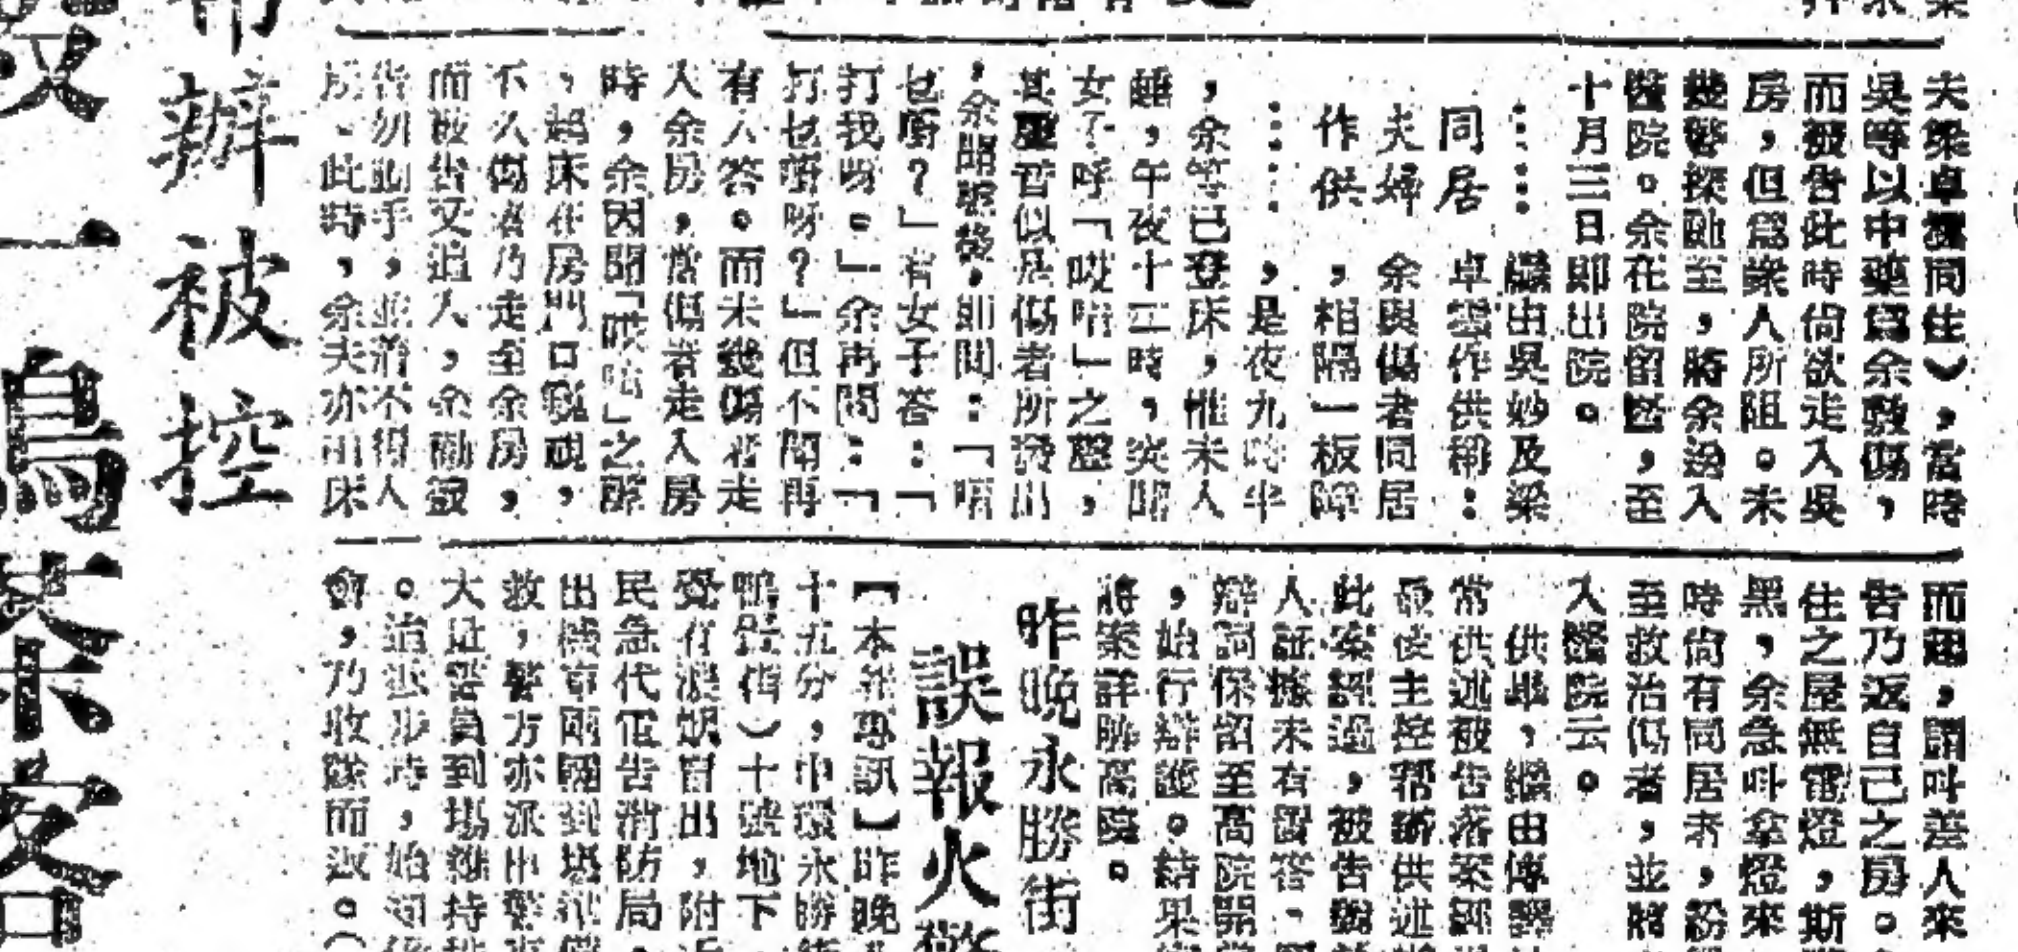 夫梁卓權同住），當時
吳等以中藥爲余敷傷，
而被告此時尙欲走入吳
房，但爲衆人所阻。未
幾警探馳至，將余送入
醫院。余在院留醫，至
十月三日卽出院。
繼由吳妙及梁
同居
夫婦
作供
卓雲作供稱：
余與傷者同居
，相隔一板障
，是夜九時半
，余等已登床，惟未入
睡，午夜十二時，突聞
女子呼「哎唷」之聲，
其聲音似是傷者所發出
，余聞聲發，卽問：「
乜嘢？」有女子答：「
打我呀。」余再問：「
打乜嘢呀？」但不聞再
有人答。而未幾傷者走
入余房，當傷者走入房
時，余因聞「哎唷」之聲
，起床在房門口窺視，
不久傷者乃走至余房，
而被告又追入，余勸被
告勿動手，並謂不得人
此時，余夫亦由床
而起，謂叫差人來
告乃返自己之房。
住之屋無電燈，斯
黑，余急叫拿燈來
時尙有同居者，紛
至救治傷者，並將
入醫院云。
供畢，繼由傳譯
常供述被告落案經
最後主控帮辦供述
此案經過，被告
人証據未有置答，
辯詞保留至高院開
，始行辯護。結果
將案詳解高院。
昨晚永勝街
誤報火警
【本報專訊】昨晚
十五分，中環永勝街
鴨蛋街）十號地下
覺有濃烟冒出，附近
民急代電告消防局
出機車兩輛到場
救，警方亦派出警
大批警員到場維持
，始
，乃收隊而返。（
一鳥茶客
帮辦被控